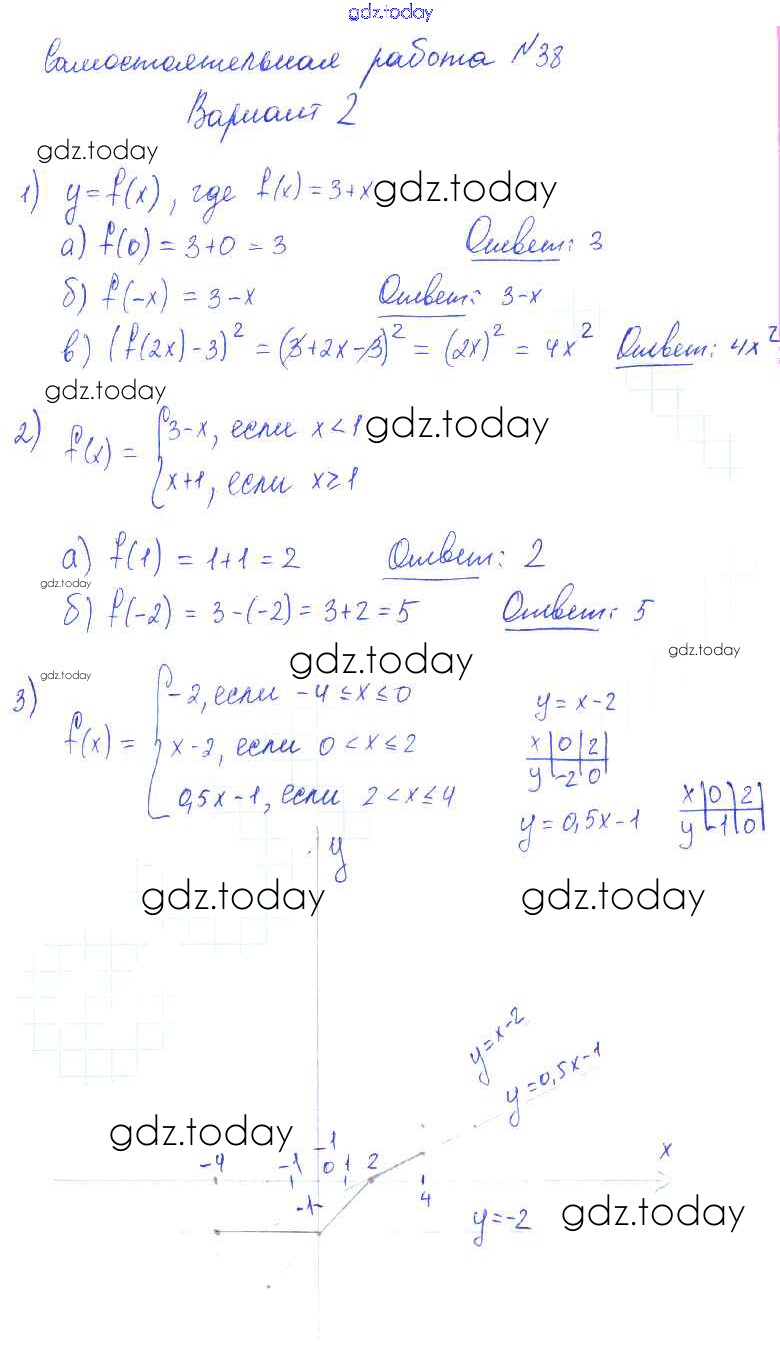 gdz.today
Самостоятельная работа №38
Вариант 2
gdz.today
1) y=f(x), где f(x)=3+x gdz.today
а) f(0) = 3+0 = 3 Ответ: 3
б) f(-x) = 3-x Ответ: 3-x
в) (f(2x)-3)² = (3+2x-3)² = (2x)² = 4x² Ответ: 4x²
gdz.today
2) f(x) = { 3-x, если x<1 gdz.today
x+1, если x≥1
а) f(1) = 1+1 = 2 Ответ: 2
gdz.today
б) f(-2) = 3-(-2) = 3+2 = 5 Ответ: 5
gdz.today
gdz.today
gdz.today
3) f(x) = { -2, если -4≤x≤0
x-2, если 0<x≤2
0,5x-1, если 2<x≤4
y = x-2
x | 0 | 2
y | -2 | 0
y = 0,5x-1
x | 0 | 2
y | -1 | 0
y
gdz.today gdz.today
y=x-2
y=0,5x-1
gdz.today
1
-4 -1 0 1 2 x
-1 4
y=-2 gdz.today